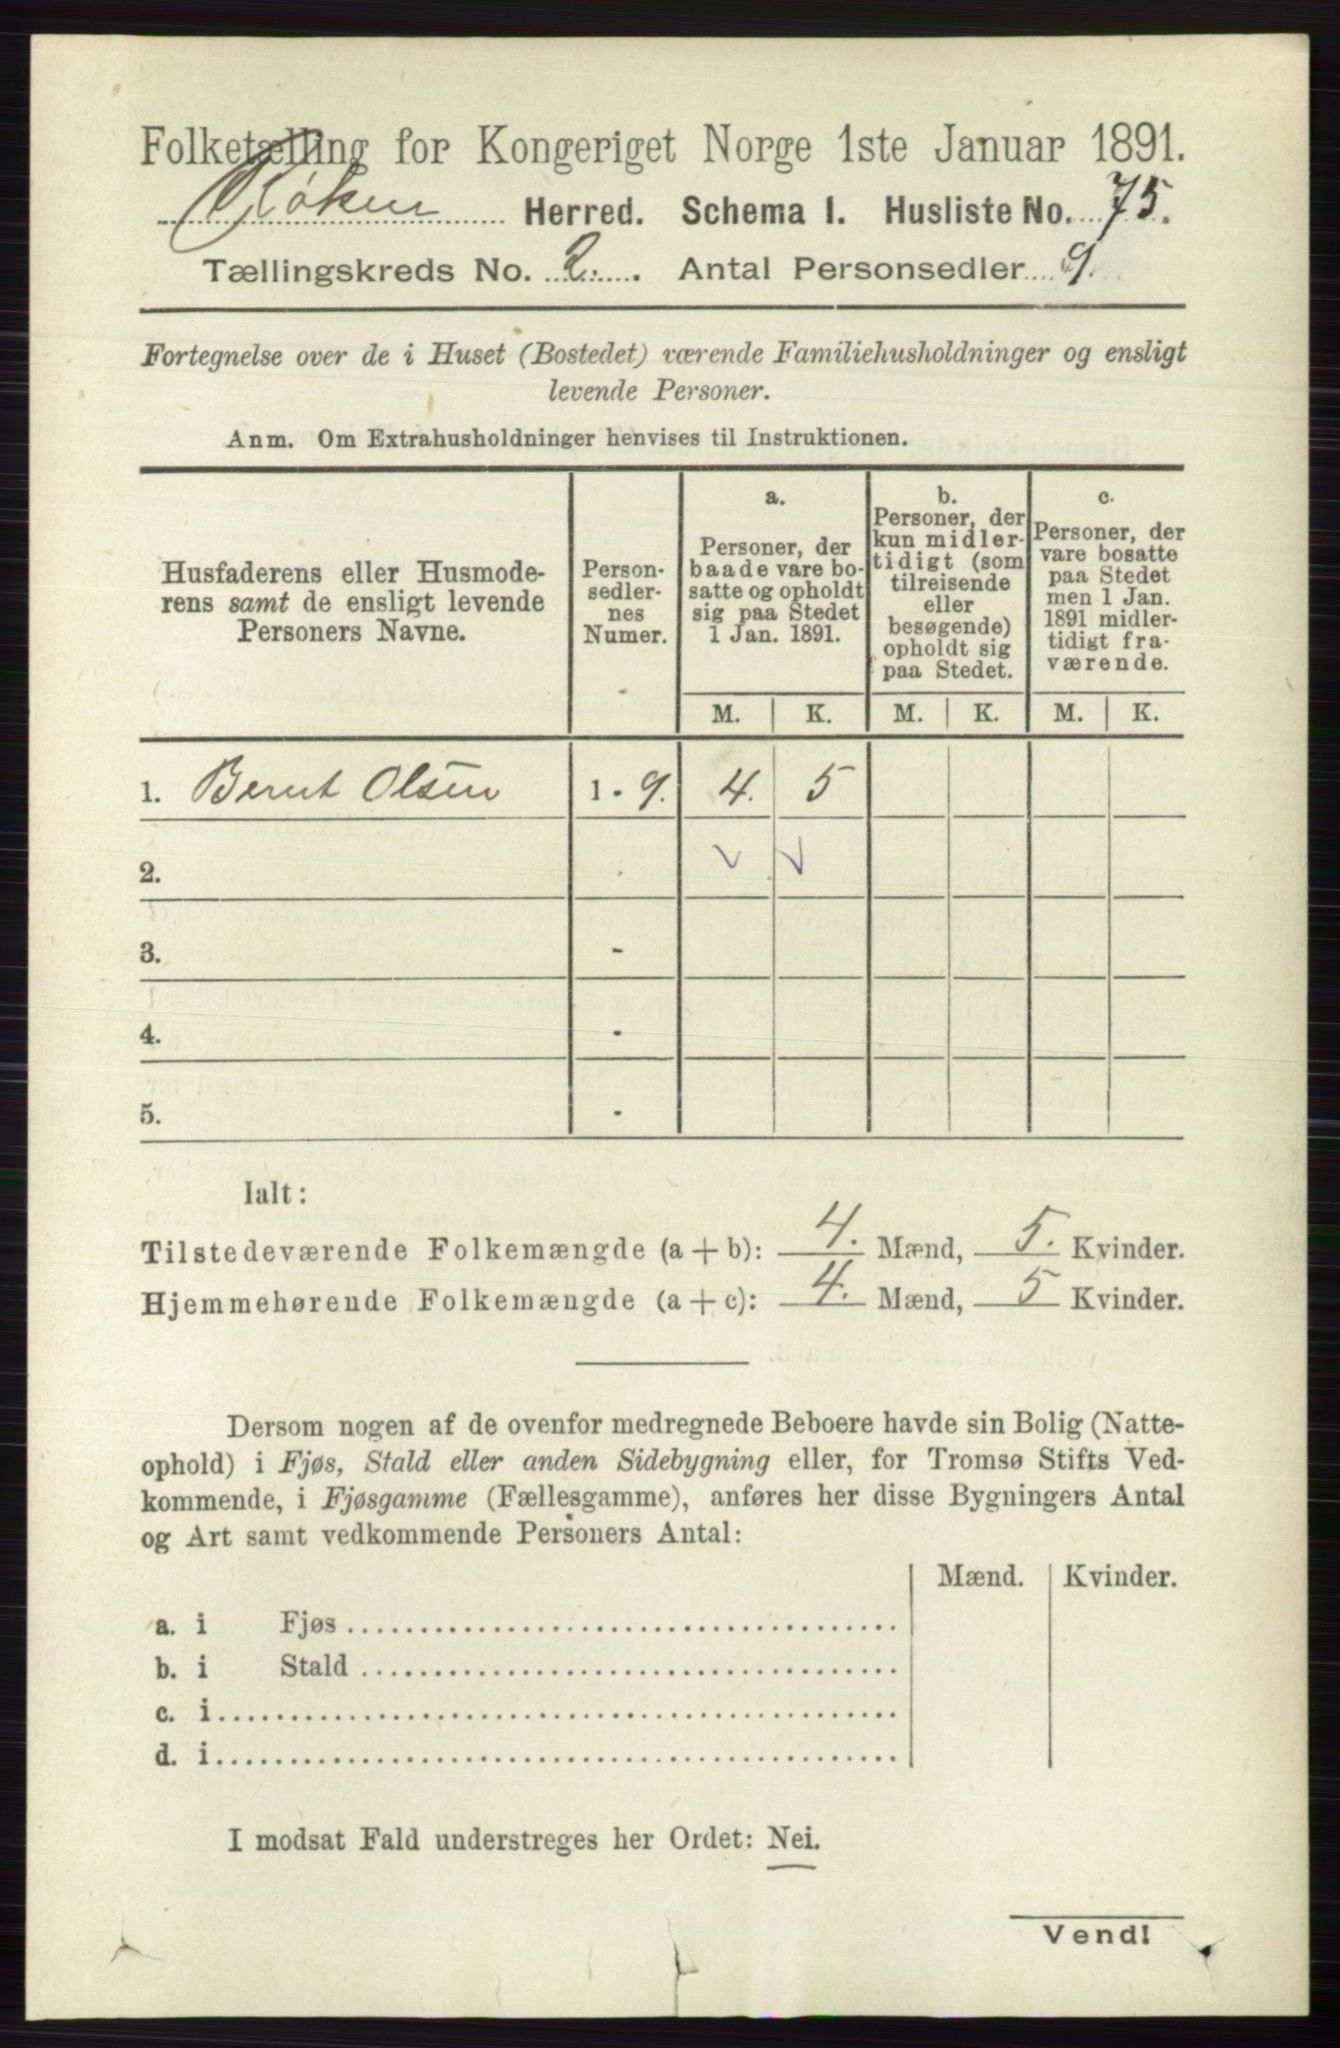 Folketælling for Kongeriget Norge 1ste Januar 1891.
Røken Herred. Schema I. Husliste No. 75.
Tællingskreds No. 2. Antal Personsedler 9.
Fortegnelse over de i Huset (Bostedet) værende Familiehusholdninger og ensligt
levende Personer.
Anm. Om Extrahusholdninger henvises til Instruktionen.
Husfaderens eller Husmode-
rens samt de ensligt levende
Personers Navne.
Person-
sedler-
nes
Numer.
a.
Personer, der
baade vare bo-
satte og opholdt
sig paa Stedet
1 Jan. 1891.
b.
Personer, der
kun midler-
tidigt (som
tilreisende
eller
besøgende)
opholdt sig
paa Stedet.
c.
Personer, der
vare bosatte
paa Stedet
men 1 Jan.
1891 midler-
tidigt fra-
værende.
M. K. M. K. M. K.
1. Bernt Olsen 1 - 9. 4. 5
2.
3. -
4. -
5. -
Ialt:
Tilstedeværende Folkemængde (a + b): 4. Mænd, 5. Kvinder.
Hjemmehørende Folkemængde (a + c): 4. Mænd, 5 Kvinder.
Dersom nogen af de ovenfor medregnede Beboere havde sin Bolig (Natte-
ophold) i Fjøs, Stald eller anden Sidebygning eller, for Tromsø Stifts Ved-
kommende, i Fjøsgamme (Fællesgamme), anføres her disse Bygningers Antal
og Art samt vedkommende Personers Antal:
Mænd. Kvinder.
a. i Fjøs
b. i Stald
c. i
d. i
I modsat Fald understreges her Ordet: Nei.
Vend!